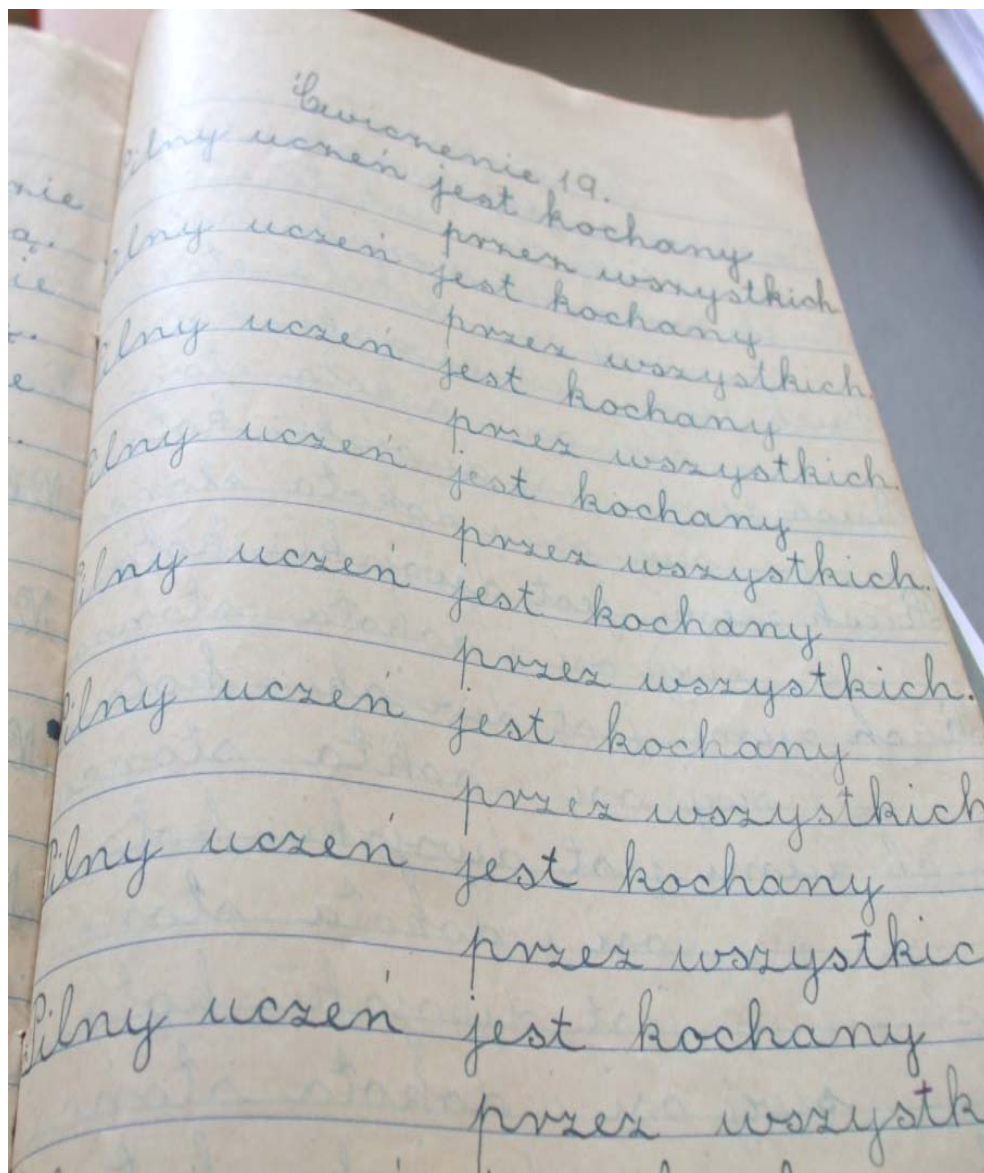 Ćwiczenie 19.
Pilny uczeń jest kochany
przez wszystkich
Pilny uczeń jest kochany
przez wszystkich.
Pilny uczeń jest kochany
przez wszystkich.
Pilny uczeń jest kochany
przez wszystkich.
Pilny uczeń jest kochany
przez wszystkich.
Pilny uczeń jest kochany
przez wszystkich
Pilny uczeń jest kochany
przez wszystkic
Pilny uczeń jest kochany
przez wszystk